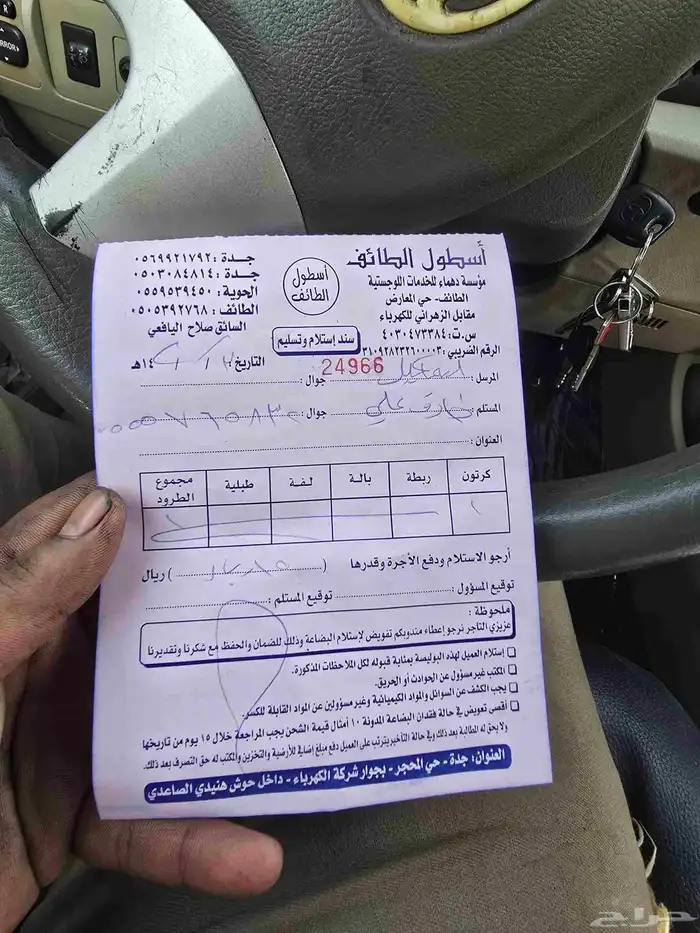 MIRROR
R
أسطول الطائف
مؤسسة دهماء للخدمات اللوجستية
الطائف - حي المعارض
مقابل الزهراني للكهرباء
س.ت: ٤٠٣٠٤٧٣٣٨٤
الرقم الضريبي: ٣١٠٩٢٨٢٣٢٦٠٠٠٠٣
أسطول
الطائف
سند إستلام وتسليم
جدة : ٠٥٦٩٩٢١٧٩٢
جدة : ٠٥٠٣٠٨٤٨١٤
الحوية : ٠٥٥٩٥٣٩٤٥٠
الطائف : ٠٥٠٥٣٩٢٧٦٨
السائق صلاح اليافعي
التاريخ ١٤هـ
24966
المرسل : جوال :
المستلم : طارق علي جوال :
العنوان :
كرتون ربطة بالة لفة طبلية مجموع الطرود
١
أرجو الاستلام ودفع الأجرة وقدرها ( ) ريال
توقيع المسؤول : توقيع المستلم :
ملحوظة :
عزيزي التاجر نرجو إعطاء مندوبكم تفويض لإستلام البضاعة وذلك للضمان والحفظ مع شكرنا وتقديرنا
إستلام العميل لهذه البوليصة بمثابة قبوله لكل الملاحظات المذكورة.
المكتب غير مسؤول عن الحوادث أو الحريق.
يجب الكشف عن السوائل والمواد الكيميائية وغير مسؤولين عن المواد القابلة للكسر.
أقصى تعويض في حالة فقدان البضاعة المدونة ١٠ أمثال قيمة الشحن يجب المراجعة خلال ١٥ يوم من تاريخها
ولا يحق له المطالبة بعد ذلك وفي حالة التأخير يترتب على العميل دفع مبلغ إضافي للأرضية والتخزين والمكتب له حق التصرف بعد ذلك.
العنوان: جدة - حي المحجر - بجوار شركة الكهرباء - داخل حوش هنيدي الصاعدي
حراج